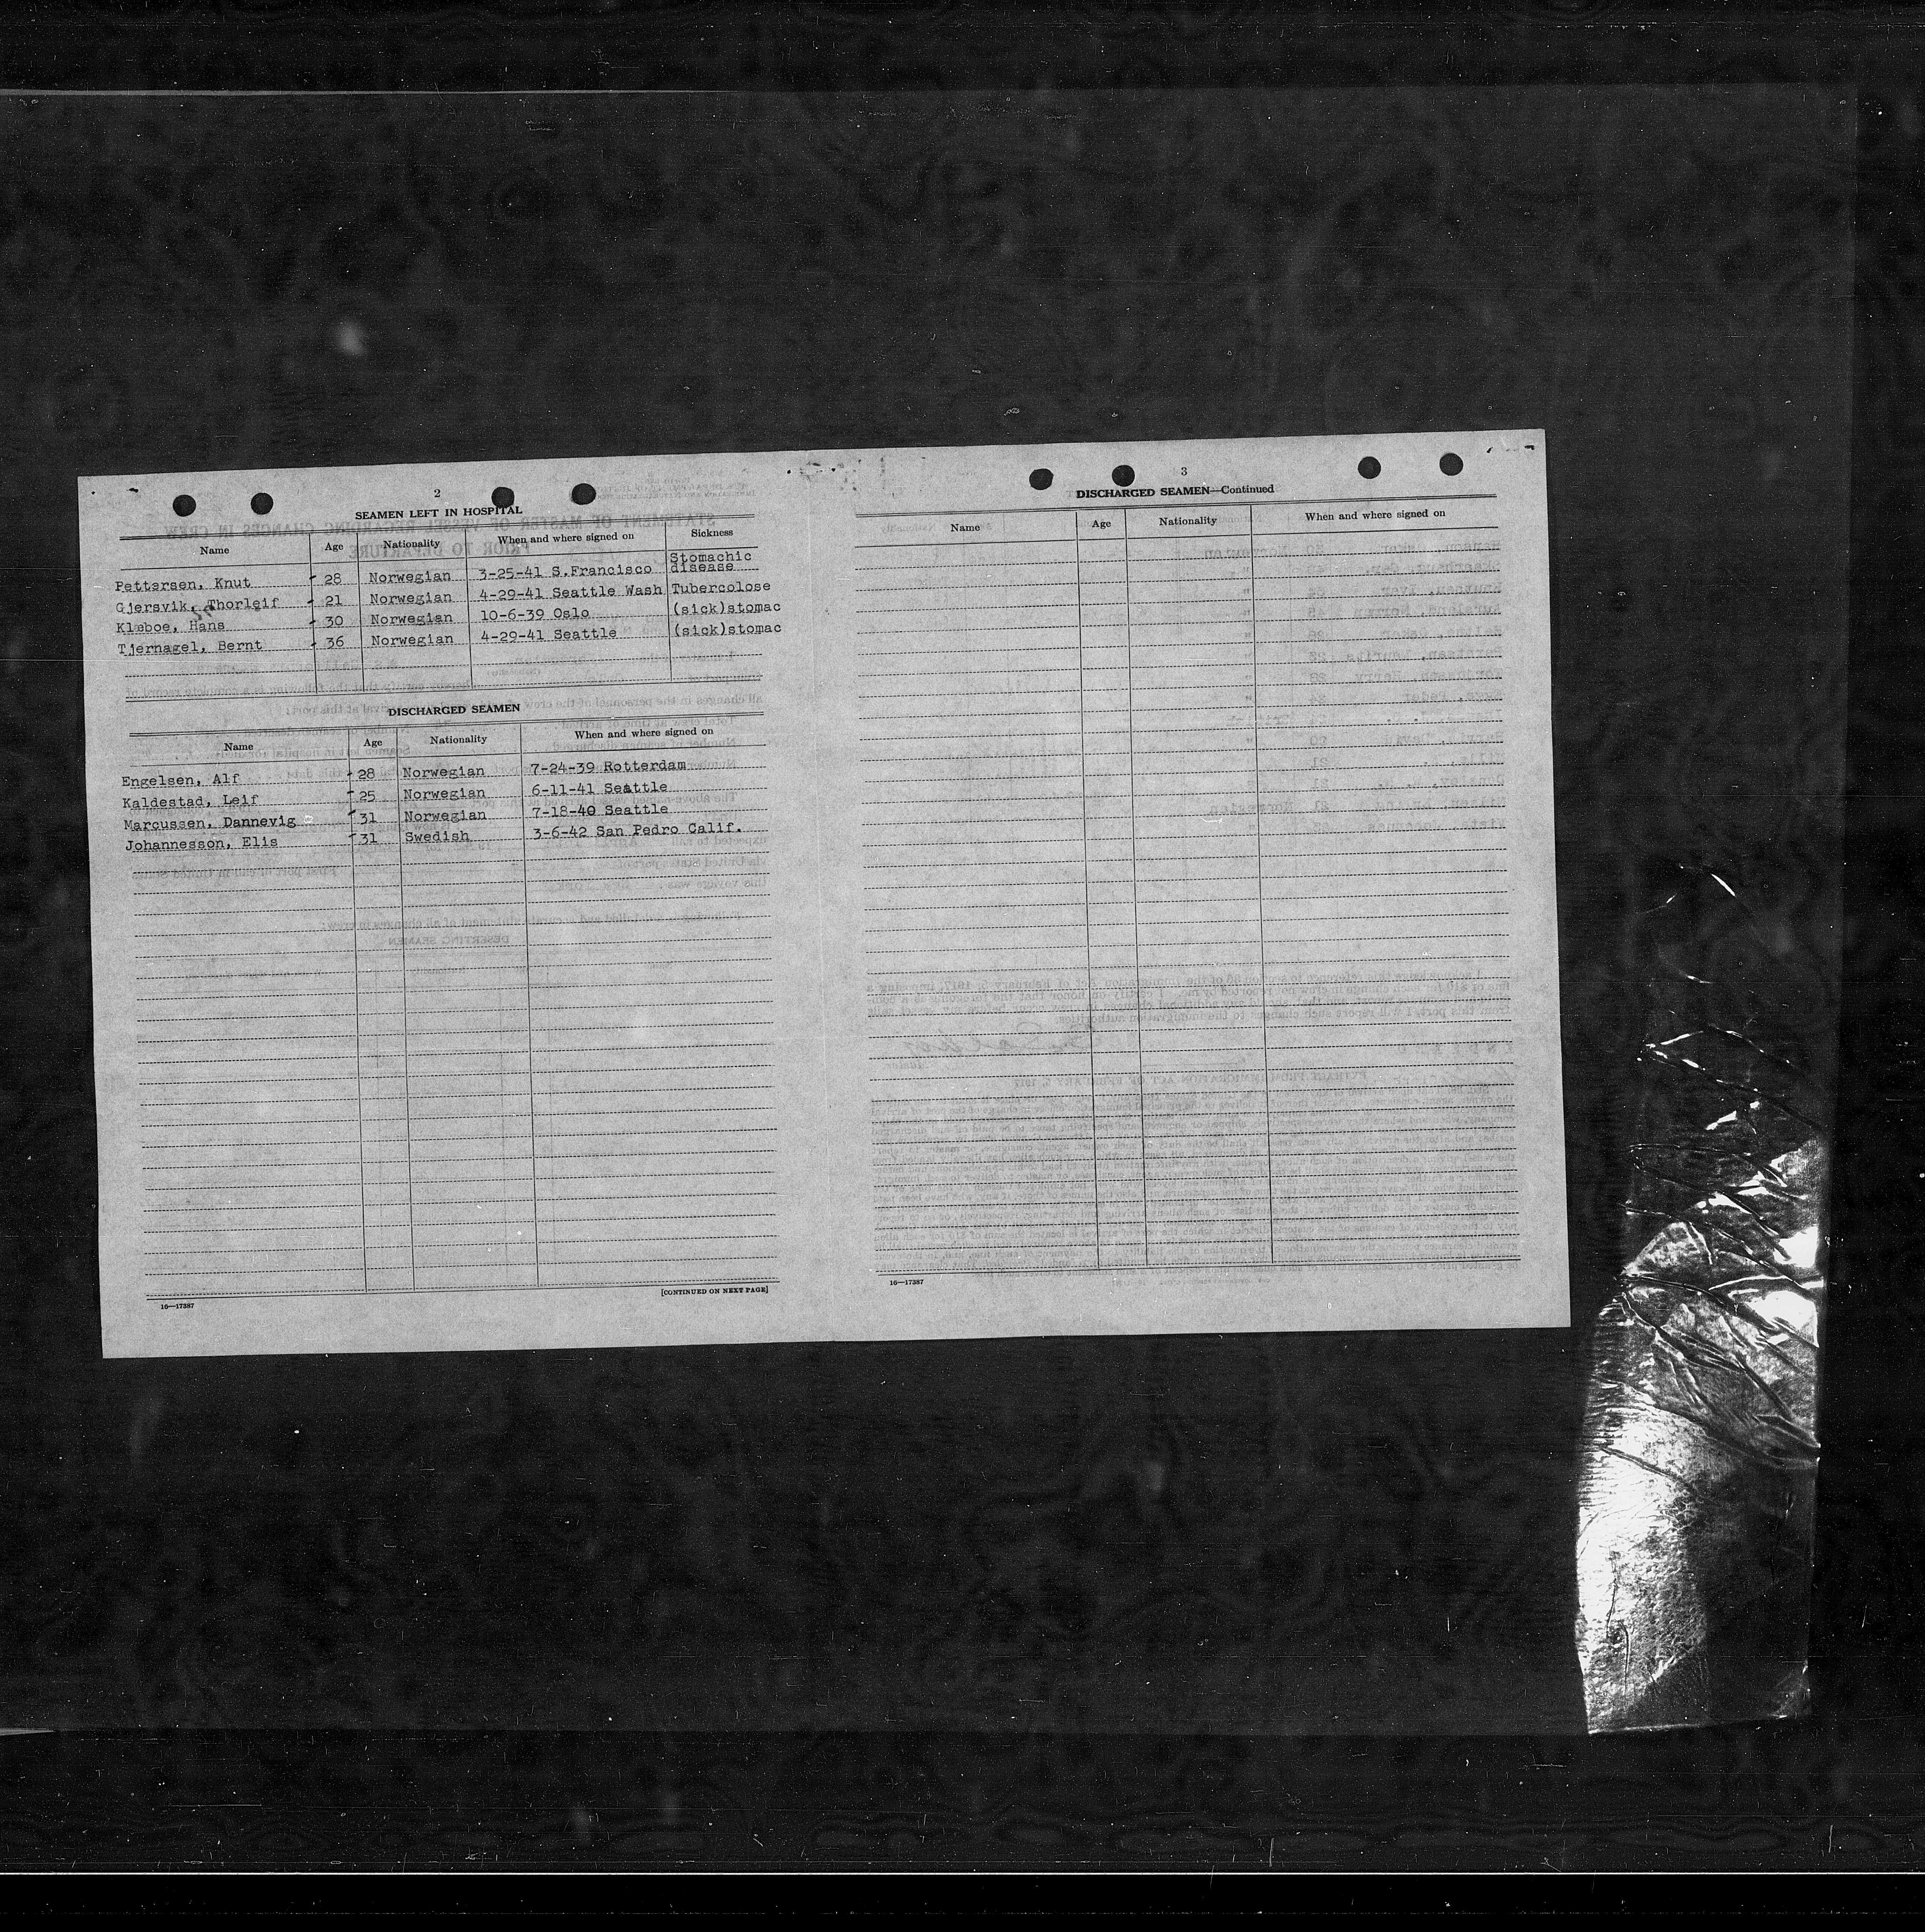 2
SEAMEN LEFT IN HOSPITAL
Name Age Nationality When and where signed on Sickness
Pettersen, Knut 28 Norwegian 3-25-41 S.Francisco Stomachic disease
Gjersvik, Thorleif 21 Norwegian 4-29-41 Seattle Wash Tubercolose
Klæboe, Hans 30 Norwegian 10-6-39 Oslo (sick)stomac
Tjernagel, Bernt 36 Norwegian 4-29-41 Seattle (sick)stomac
DISCHARGED SEAMEN
Name Age Nationality When and where signed on
Engelsen, Alf 28 Norwegian 7-24-39 Rotterdam
Kaldestad, Leif 25 Norwegian 6-11-41 Seattle
Marcussen, Dannevig 31 Norwegian 7-18-40 Seattle
Johannesson, Elis 31 Swedish 3-6-42 San Pedro Calif.
16—17387
[CONTINUED ON NEXT PAGE]
3
DISCHARGED SEAMEN—Continued
Name Age Nationality When and where signed on
16—17387